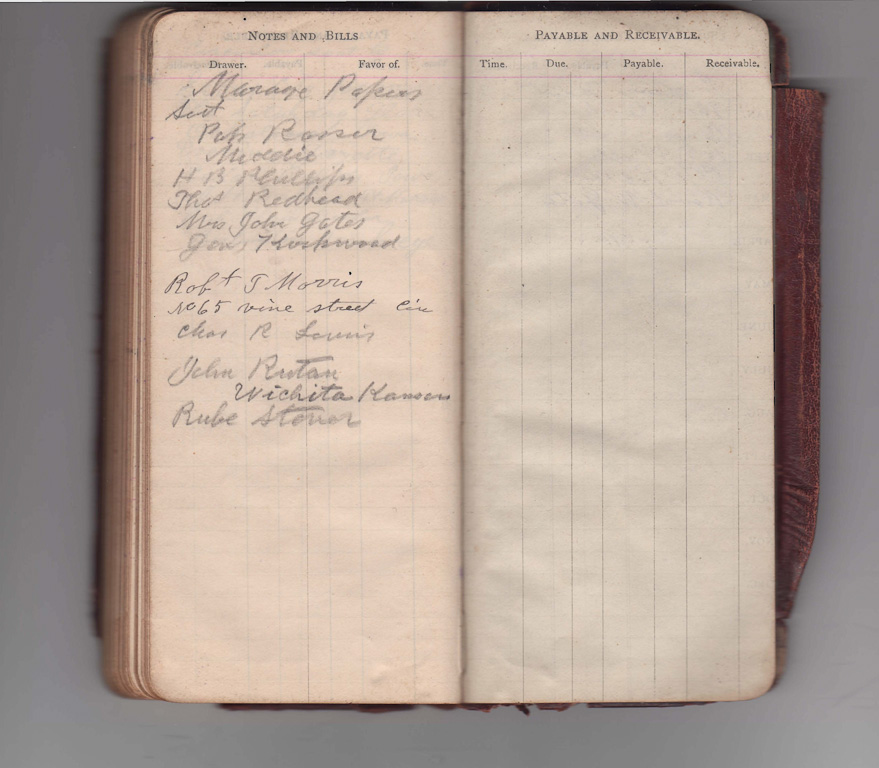 NOTES AND BILLS
PAYABLE AND RECEIVABLE.
Drawer. Favor of.
Time. Due. Payable. Receivable.
Marage Papers
Sent
Rosser
Middie
H B Phillips
Thos Redhead
Mrs John Gates
Kirkwood
Robt T Morris
No 65 vine street Cin
Chas R Lewis
John Rutan
Wichita Kansas
Rube Stover